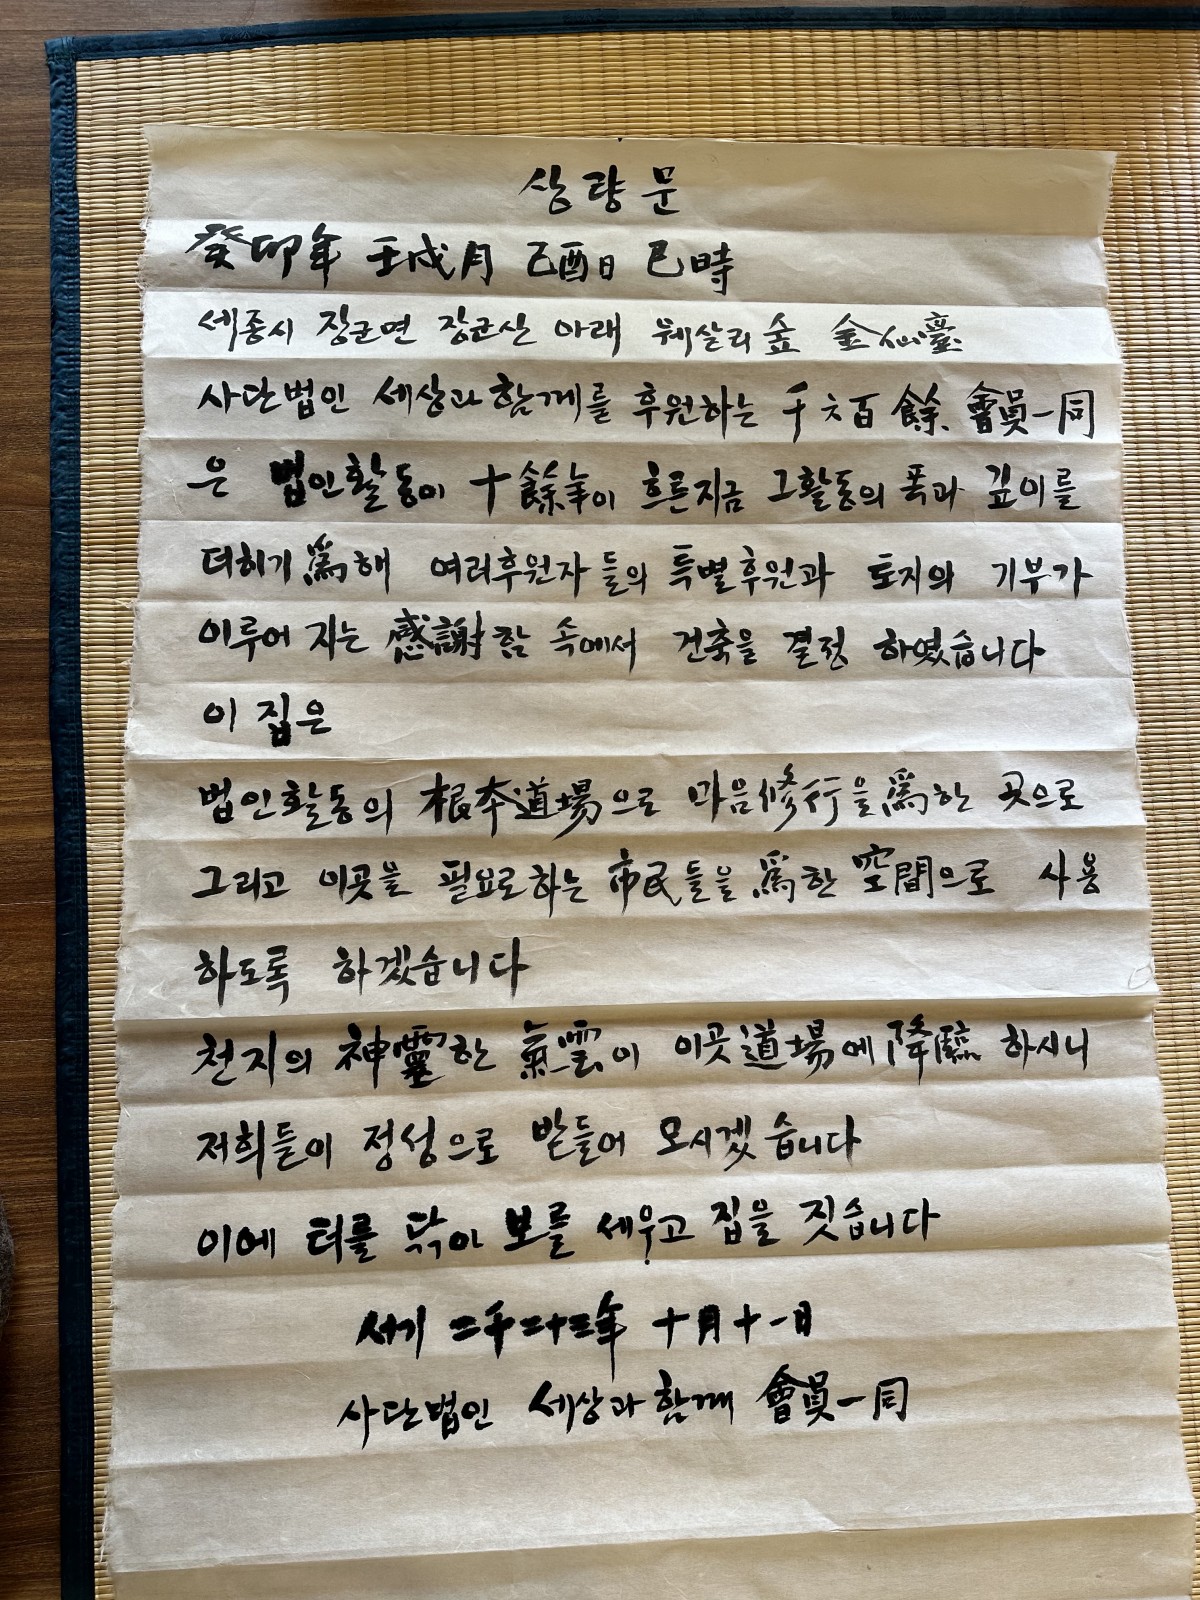 상량문
癸卯年 壬戌月 己酉日 巳時
세종시 장군면 장군산 아래 웨살리숲 金仙臺
사단법인 세상과함께를 후원하는 千六百餘 會員一同
은 법인활동이 十餘年이 흐른지금 그활동의 폭과 깊이를
더하기 爲해 여러후원자들의 특별후원과 토지의 기부가
이루어 지는 感謝함 속에서 건축을 결정 하였습니다
이 집은
법인활동의 根本道場으로 마음修行을 爲한 곳으로
그리고 이곳을 필요로하는 市民들을 爲한 空間으로 사용
하도록 하겠습니다
천지의 神靈한 氣雲이 이곳道場에 降臨 하시니
저희들이 정성으로 받들어 모시겠습니다
이에 터를 닦아 보를 세우고 집을 짓습니다
서기 二千二十三年 十月十一日
사단법인 세상과함께 會員一同